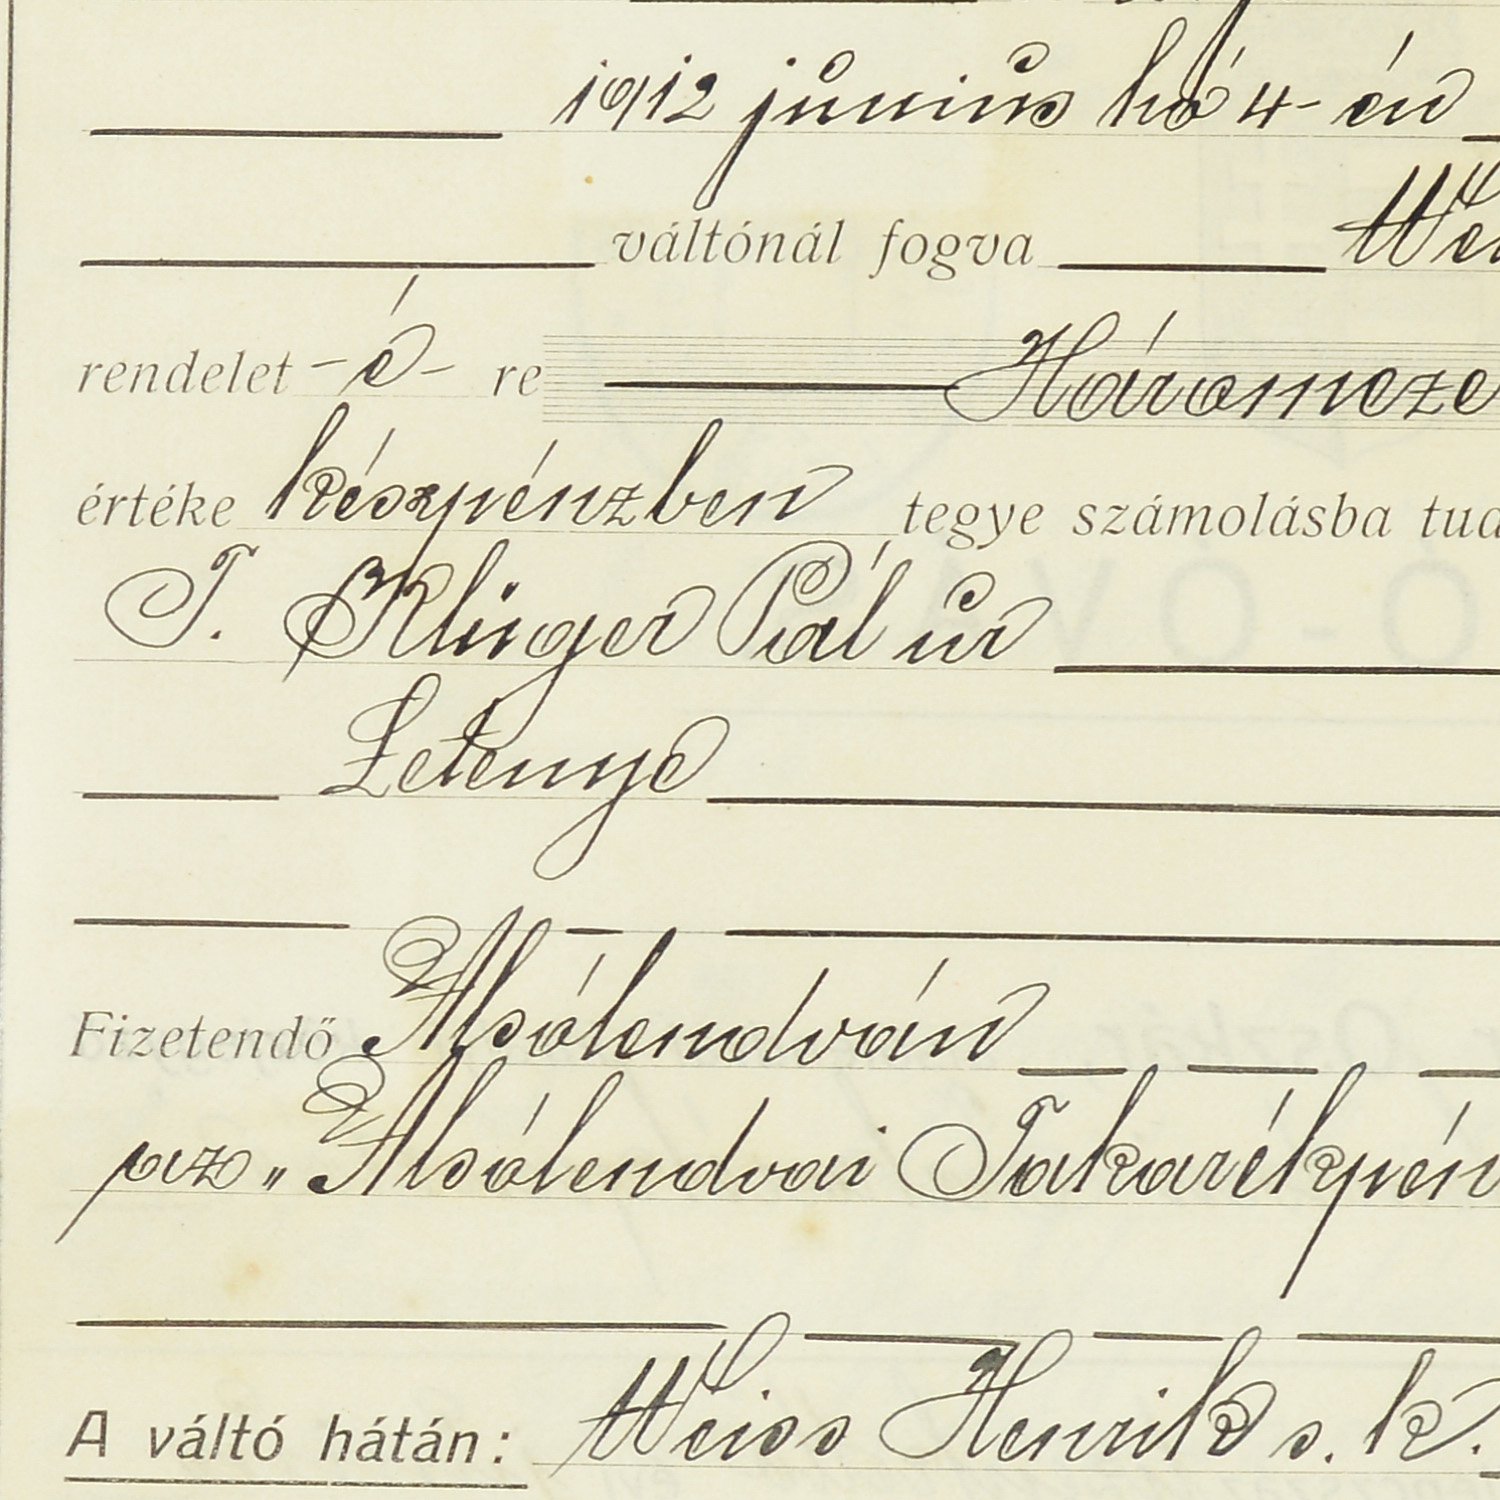 1912 június hó 4-én
váltónál fogva
rendelet -é- re Háromeze
értéke készpénzben tegye számolásba
T. Klinger Pál úr
Letenye
Fizetendő Alsólendván
az „Alsólendvai Takarékpén
A váltó hátán: Weiss Henrik s. k.